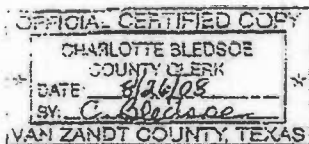 OFFICIAL CERTIFIED COPY
CHARLOTTE BLEDSOE
COUNTY CLERK
DATE: 8/26/08
BY: C. Bledsoe
VAN ZANDT COUNTY, TEXAS